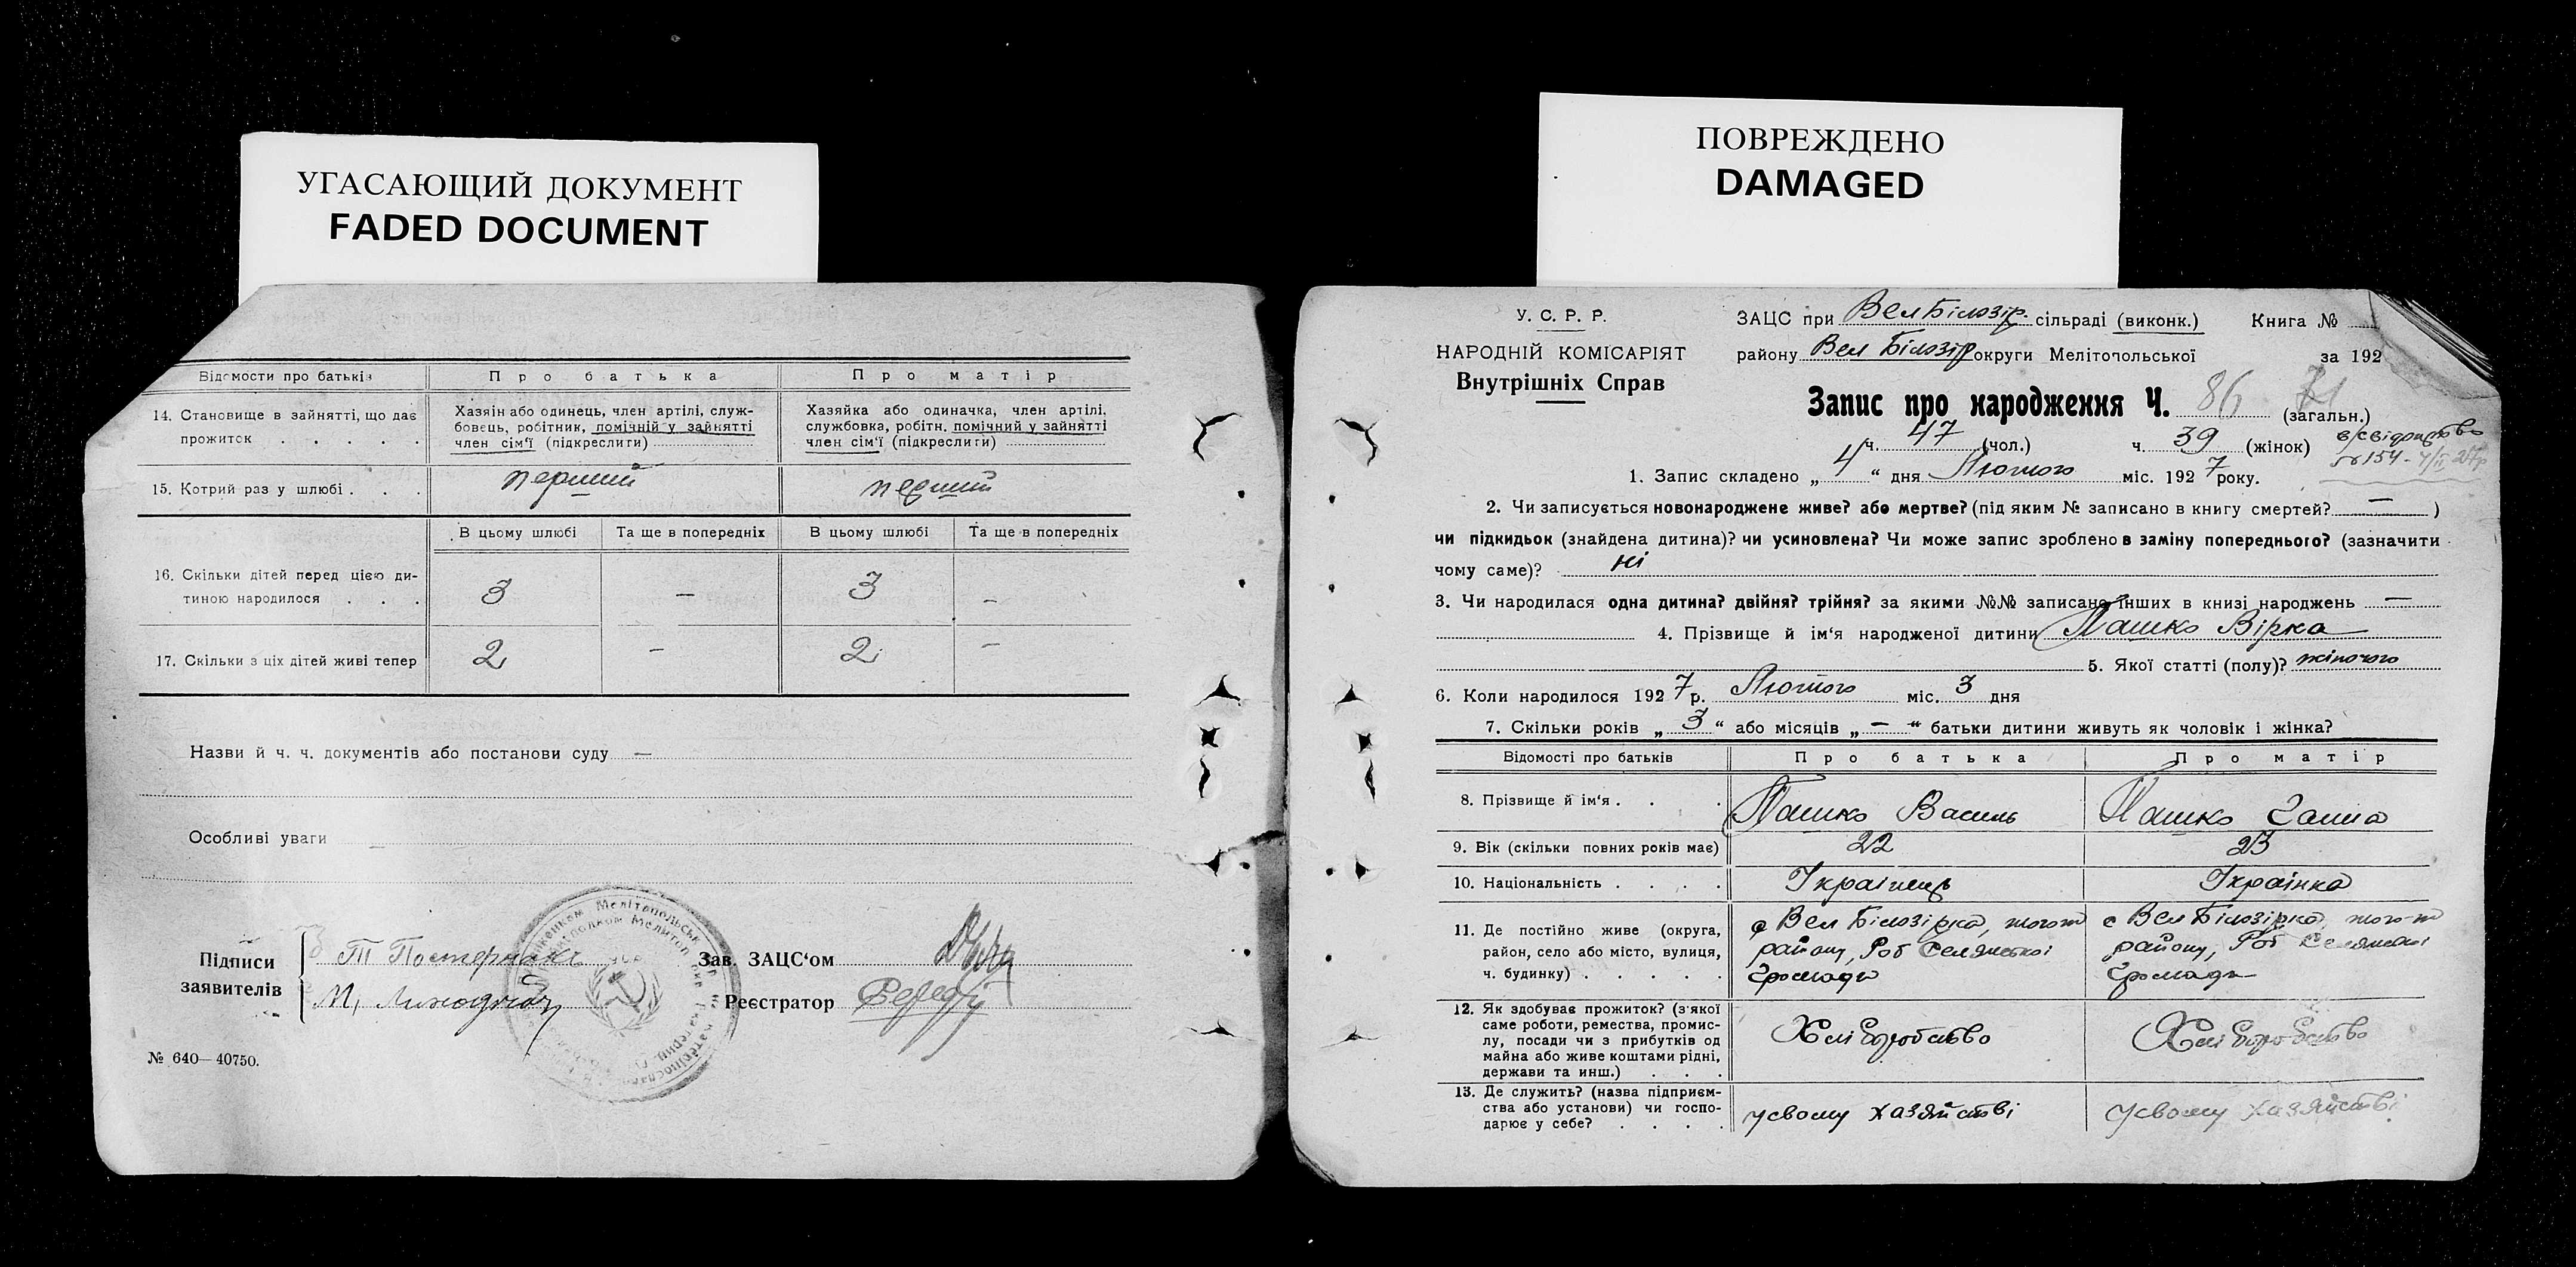 УГАСАЮЩИЙ ДОКУМЕНТ
FADED DOCUMENT
Відомости про батьків
Про батька
Про матір
14. Становище в зайнятті, що дає прожиток . . . . .
Хазяін або одинець, член артілі, служ-
бовець, робітник, помічній у зайнятті
член сім'ї (підкреслити)
Хазяйка або одиначка, член артілі,
службовка, робітн. помічний у зайнятті
член сім'ї (підкреслити)
15. Котрий раз у шлюбі . . .
перший
перший
В цьому шлюбі
Та ще в попередніх
В цьому шлюбі
Та ще в попередніх
16. Скільки дітей перед цією ди-
тиною народилося . . .
3 — 3 –
17. Скільки з ціх дітей живі тепер
2 – 2 –
Назви й ч. ч. документів або постанови суду —
Особливі уваги —
Підписи
заявителів
Т Постернак
М,
Зав. ЗАЦС'ом
Реєстратор
№ 640—40750.
ПОВРЕЖДЕНО
DAMAGED
У. С. Р. Р.
НАРОДНІЙ КОМІСАРІЯТ
Внутрішніх Справ
ЗАЦС при ВелБілозір. сільраді (виконк.) Книга №
району Вел Білозір округи Мелітопольської за 192
Запис про народження Ч. 86 71 (загальн.)
ч. 47 (чол.) ч. 39 (жінок)
№154-4/II 27р
1. Запис складено „ 4 “ дня Лютого міс. 1927 року.
2. Чи записується новонароджене живе? або мертве? (під яким № записано в книгу смертей? — )
чи підкидьок (знайдена дитина)? чи усиновлена? Чи може запис зроблено в заміну попереднього? (зазначити
чому саме)? ні
3. Чи народилася одна дитина? двійня? трійня? за якими №№ записано інших в книзі народжень —
4. Прізвище й ім'я народженої дитини Пашко Вірка
5. Якої статті (полу)? жіночого
6. Коли народилося 1927 р. Лютого міс. 3 дня
7. Скільки років „ 3 “ або місяців „ — “ батьки дитини живуть як чоловік і жінка?
Відомості про батьків
Про батька
Про матір
8. Прізвище й ім'я . . .
Пашко Василь
Пашко Ганна
9. Вік (скільки повних років має)
22
23
10. Національність . . . .
Українець
Українка
11. Де постійно живе (округа,
район, село або місто, вулиця,
ч. будинку) . . . . .
с Вел Білозірка, того-ж
району, Роб Селянської
Громади
с Вел Білозірка, того-ж
району, Роб Селянської
Громади
12. Як здобуває прожиток? (з'якої
саме роботи, ремества, промис-
лу, посади чи з прибутків од
майна або живе коштами рідні,
держави та инш.) . . .
Хліборобство
Хліборобство
13. Де служить? (назва підприєм-
ства або установи) чи госпо-
дарює у себе? . . . .
усвому хазяйстві
усвому хазяйстві